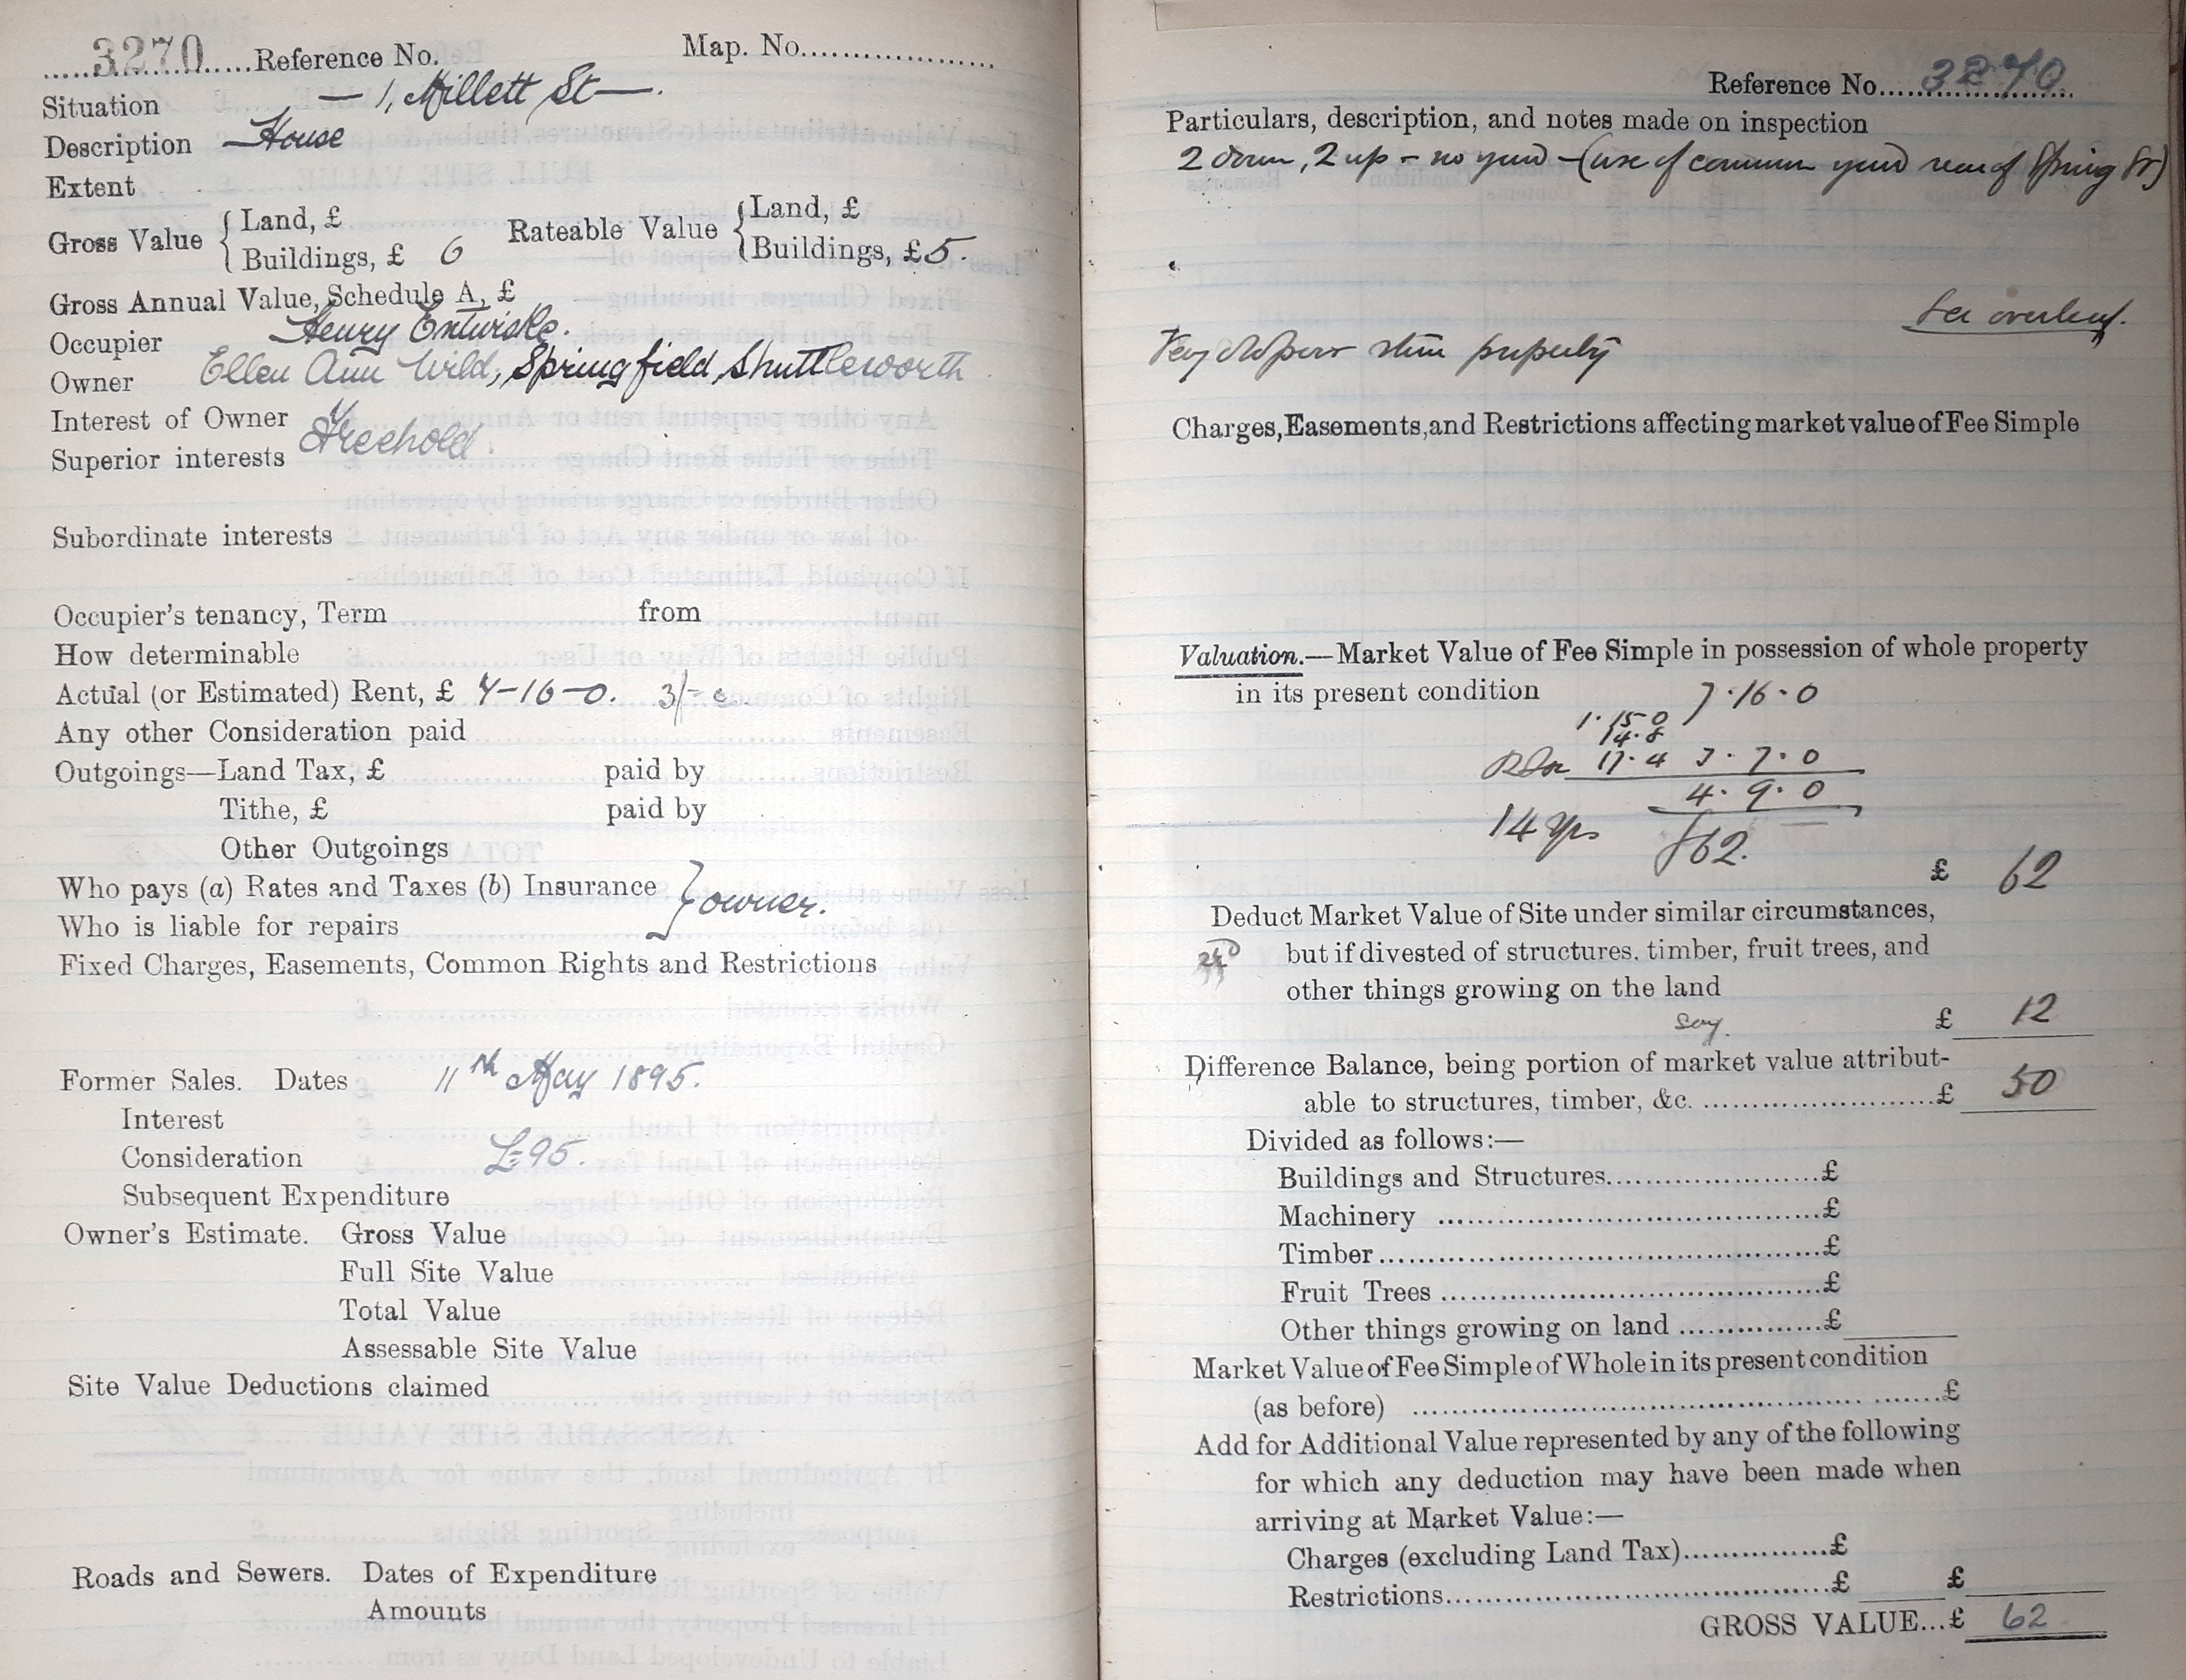 3270 Reference No. Map. No.
Situation — 1, Millett St —.
Description House
Extent
Gross Value { Land, £ Rateable Value { Land, £
Buildings, £ 6 Buildings, £ 5.
Gross Annual Value, Schedule A, £
Occupier Henry Entwisle.
Owner Ellen Ann Wild, Springfield, Shuttleworth
Interest of Owner Freehold.
Superior interests
Subordinate interests
Occupier's tenancy, Term from
How determinable
Actual (or Estimated) Rent, £ 7-16-0. 3/-
Any other Consideration paid
Outgoings—Land Tax, £ paid by
Tithe, £ paid by
Other Outgoings
Who pays (a) Rates and Taxes (b) Insurance } owner.
Who is liable for repairs
Fixed Charges, Easements, Common Rights and Restrictions
Former Sales. Dates 11th May 1895.
Interest
Consideration £95.
Subsequent Expenditure
Owner's Estimate. Gross Value
Full Site Value
Total Value
Assessable Site Value
Site Value Deductions claimed
Roads and Sewers. Dates of Expenditure
Amounts
Reference No. 3270
Particulars, description, and notes made on inspection
2 down, 2 up - no yard - (use of common yard rear of Spring St)
See overleaf.
Very property
Charges, Easements, and Restrictions affecting market value of Fee Simple
Valuation.—Market Value of Fee Simple in possession of whole property
in its present condition 7.16.0
1.15.0
14.8
17.4 3.7.0
4.9.0
14 Yrs £62.
£ 62
Deduct Market Value of Site under similar circumstances,
but if divested of structures, timber, fruit trees, and
other things growing on the land
say. £ 12
Difference Balance, being portion of market value attribut-
able to structures, timber, &c. £ 50
Divided as follows:—
Buildings and Structures £
Machinery £
Timber £
Fruit Trees £
Other things growing on land £
Market Value of Fee Simple of Whole in its present condition
(as before) £
Add for Additional Value represented by any of the following
for which any deduction may have been made when
arriving at Market Value:—
Charges (excluding Land Tax) £
Restrictions £ £
GROSS VALUE...£ 62